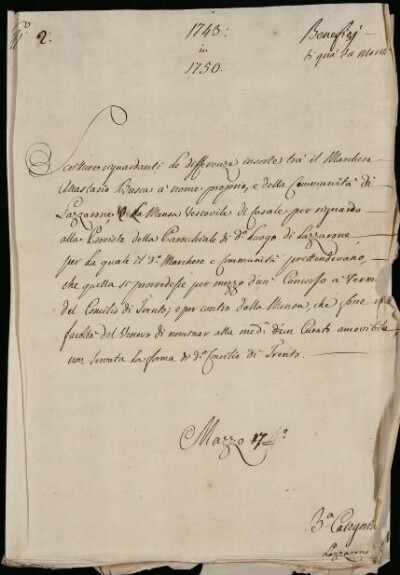 N.º 2.
1743:
in
1750.
Benefizj
di quà da Monti
Scritture riguardanti le differenze insorte trà il Marchese
Anastasio Busca à nome proprio, e della Communità di
Lazzarone, e la Mensa Vescovile di Casale per riguardo
alla Provista della Parochiale di d.º Luogo di Lazzarone,
per la quale il d.º Marchese e Communità prettendevano,
che quella si provedesse per mezzo d'un Concorso à term
del Concilio di Trento; e per contro dalla Mensa, che fosse in
facoltà del Vescovo di nominar alla med.ª d'un Curato amovibile,
non servata la forma di d.º Concilio di Trento.
Mazzo 17.º
3.ª Categoria
Lazzarone